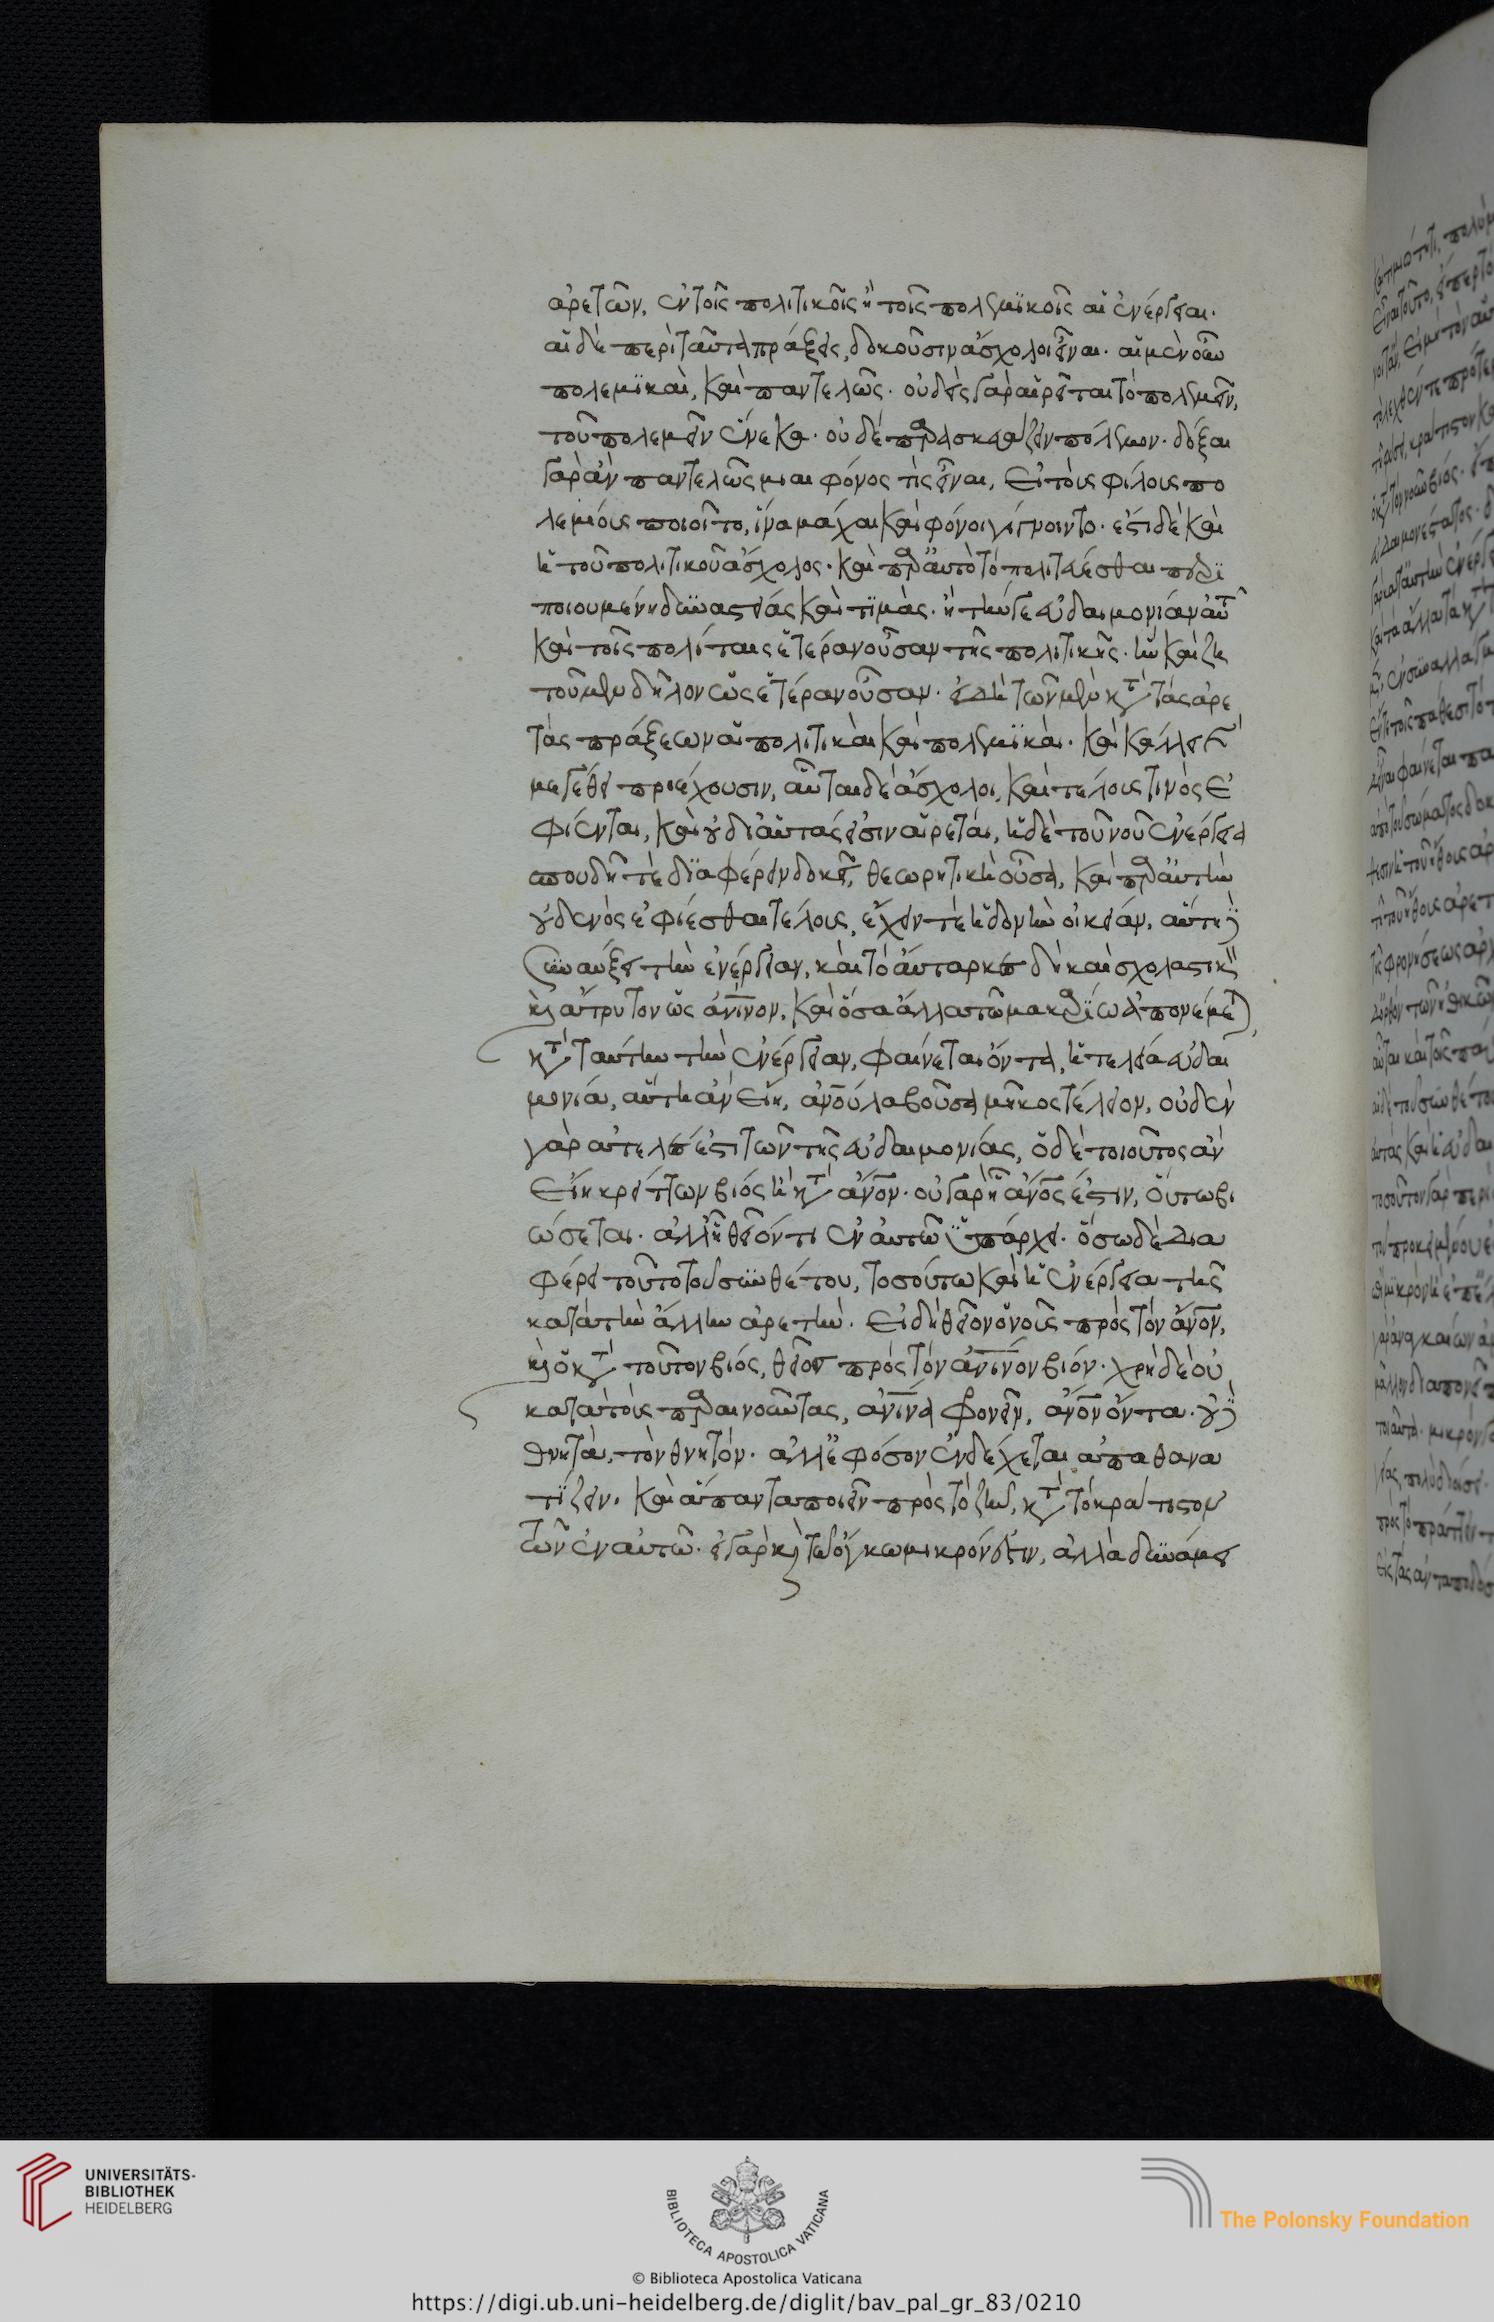 ἀρετῶν, ἐν τοῖς πολιτικοῖς ἢ τοῖς πολεμϊκοῖς αἱ ἐνέργειαι·
αἱ δὲ περὶ ταῦτα πράξεις, δοκοῦσιν ἄσχολοι εἶναι· αἱ μὲν οὖν
πολεμϊκαὶ, καὶ παντελῶς· οὐδεὶς γὰρ αἱρεῖται τὸ πολεμεῖν,
τοῦ πολεμεῖν ἕνεκα· οὐδὲ παρασκευάζειν πόλεμον· δόξαι
γὰρ ἂν παντελῶς μιαιφόνος τὶς εἶναι, εἰ τοὺς φίλους πο
λεμίους ποιοῖτο, ἵνα μάχαι καὶ φόνοι γίγνοιντο· ἔστι δὲ καὶ
ἡ τοῦ πολιτικοῦ ἄσχολος· καὶ παρ' αὐτὸ τὸ πολιτεύεσθαι περϊ
ποιουμένη δυναστείας καὶ τϊμὰς· ἢ τήν γε εὐδαιμονίαν αὐτῶ
καὶ τοῖς πολίταις ἑτέραν οὖσαν τῆς πολιτικῆς· ἣν καὶ ζη
τοῦμεν δῆλον ὡς ἑτέραν οὖσαν· εἰ δὴ τῶν μὲν κατὰ τὰς ἀρε
τὰς πράξεων αἱ πολιτικαὶ καὶ πολεμϊκαὶ· καὶ κάλλει καὶ
μεγέθει προέχουσιν, αὗται δὲ ἄσχολοι, καὶ τέλους τινὸς ἐ
φίενται, καὶ οὐ δι' αὑτάς εἰσιν αἱρεταί, ἡ δὲ τοῦ νοῦ ἐνέργεια
σπουδῆ τὲ δϊαφέρειν δοκεῖ, θεωρητικὴ οὖσα, καὶ παρ' αὑτὴν
οὐδενὸς ἐφίεσθαι τέλους, ἔχειν τὲ ἡδονὴν οἰκείαν, αὕτη δὲ
συναύξει τὴν ἐνέργειαν, καὶ τὸ αὔταρκες δὴ καὶ σχολαστικὸν
καὶ ἄτρυτον ὡς ἀνίνον, καὶ ὅσα ἄλλα τῶ μακαρϊίω ἀπονέμεται,
κατὰ ταύτην τὴν ἐνέργειαν, φαίνεται ὄντα, ἡ τελεία εὐδαι
μονία, αὕτη ἂν εἴη, ἀνοῦ λαβοῦσα μῆκος τέλειον, οὐδὲν
γὰρ ἀτελές ἐστι τῶν τῆς εὐδαιμονίας, ὁ δὲ τοιοῦτος ἂν
εἴη κρείττων βίος ἢ κατὰ ἄνον· οὐ γὰρ ἧ ἄνος ἐστιν, οὕτω βι
ώσεται· ἀλλ' ἧ θεῖόν τι ἐν αὐτῶ ὑπάρχει· ὅσω δὲ δια
φέρει τοῦτο τοῦ συνθέτου, τοσούτω καὶ ἡ ἐνέργεια τῆς
κατὰ τὴν ἄλλην ἀρετήν. εἰ δὴ θεῖον ὁ νοῦς πρὸς τὸν ἄνον,
καὶ ὁ κατὰ τοῦτον βίος, θεῖος πρὸς τὸν ἀνίνον βίον· χρὴ δὲ οὐ
κατὰ τοὺς παραινοῦντας, ἀνίνα φρονεῖν, ἄνον ὄντα· οὐδὲ
θνητὰ, τὸν θνητόν· ἀλλ' ἐφ' ὅσον ἐνδέχεται ἀπαθανα
τίζειν, καὶ ἅπαντα ποιεῖν πρὸς τὸ ζῆν, κατὰ τὸ κράτιστον
τῶν ἐν αὑτῶ· εἰ γὰρ καὶ τῶ ὄγκω μικρόν ἐστιν, ἀλλὰ δυνάμει
UNIVERSITÄTS-
BIBLIOTHEK
HEIDELBERG
BIBLIOTECA APOSTOLICA VATICANA
The Polonsky Foundation
© Biblioteca Apostolica Vaticana
https://digi.ub.uni-heidelberg.de/diglit/bav_pal_gr_83/0210